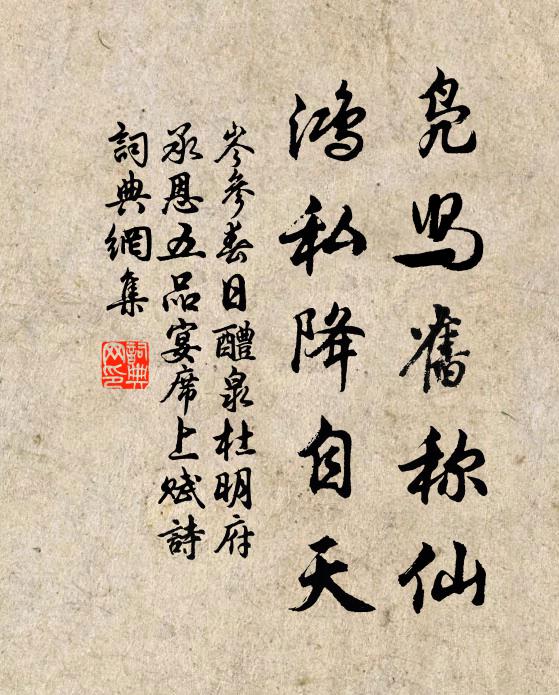 凫舄舊称仙
鴻私降自天
岑參春日醴泉杜明府
承恩五品宴席上赋詩
詞典網集
詞典
网印